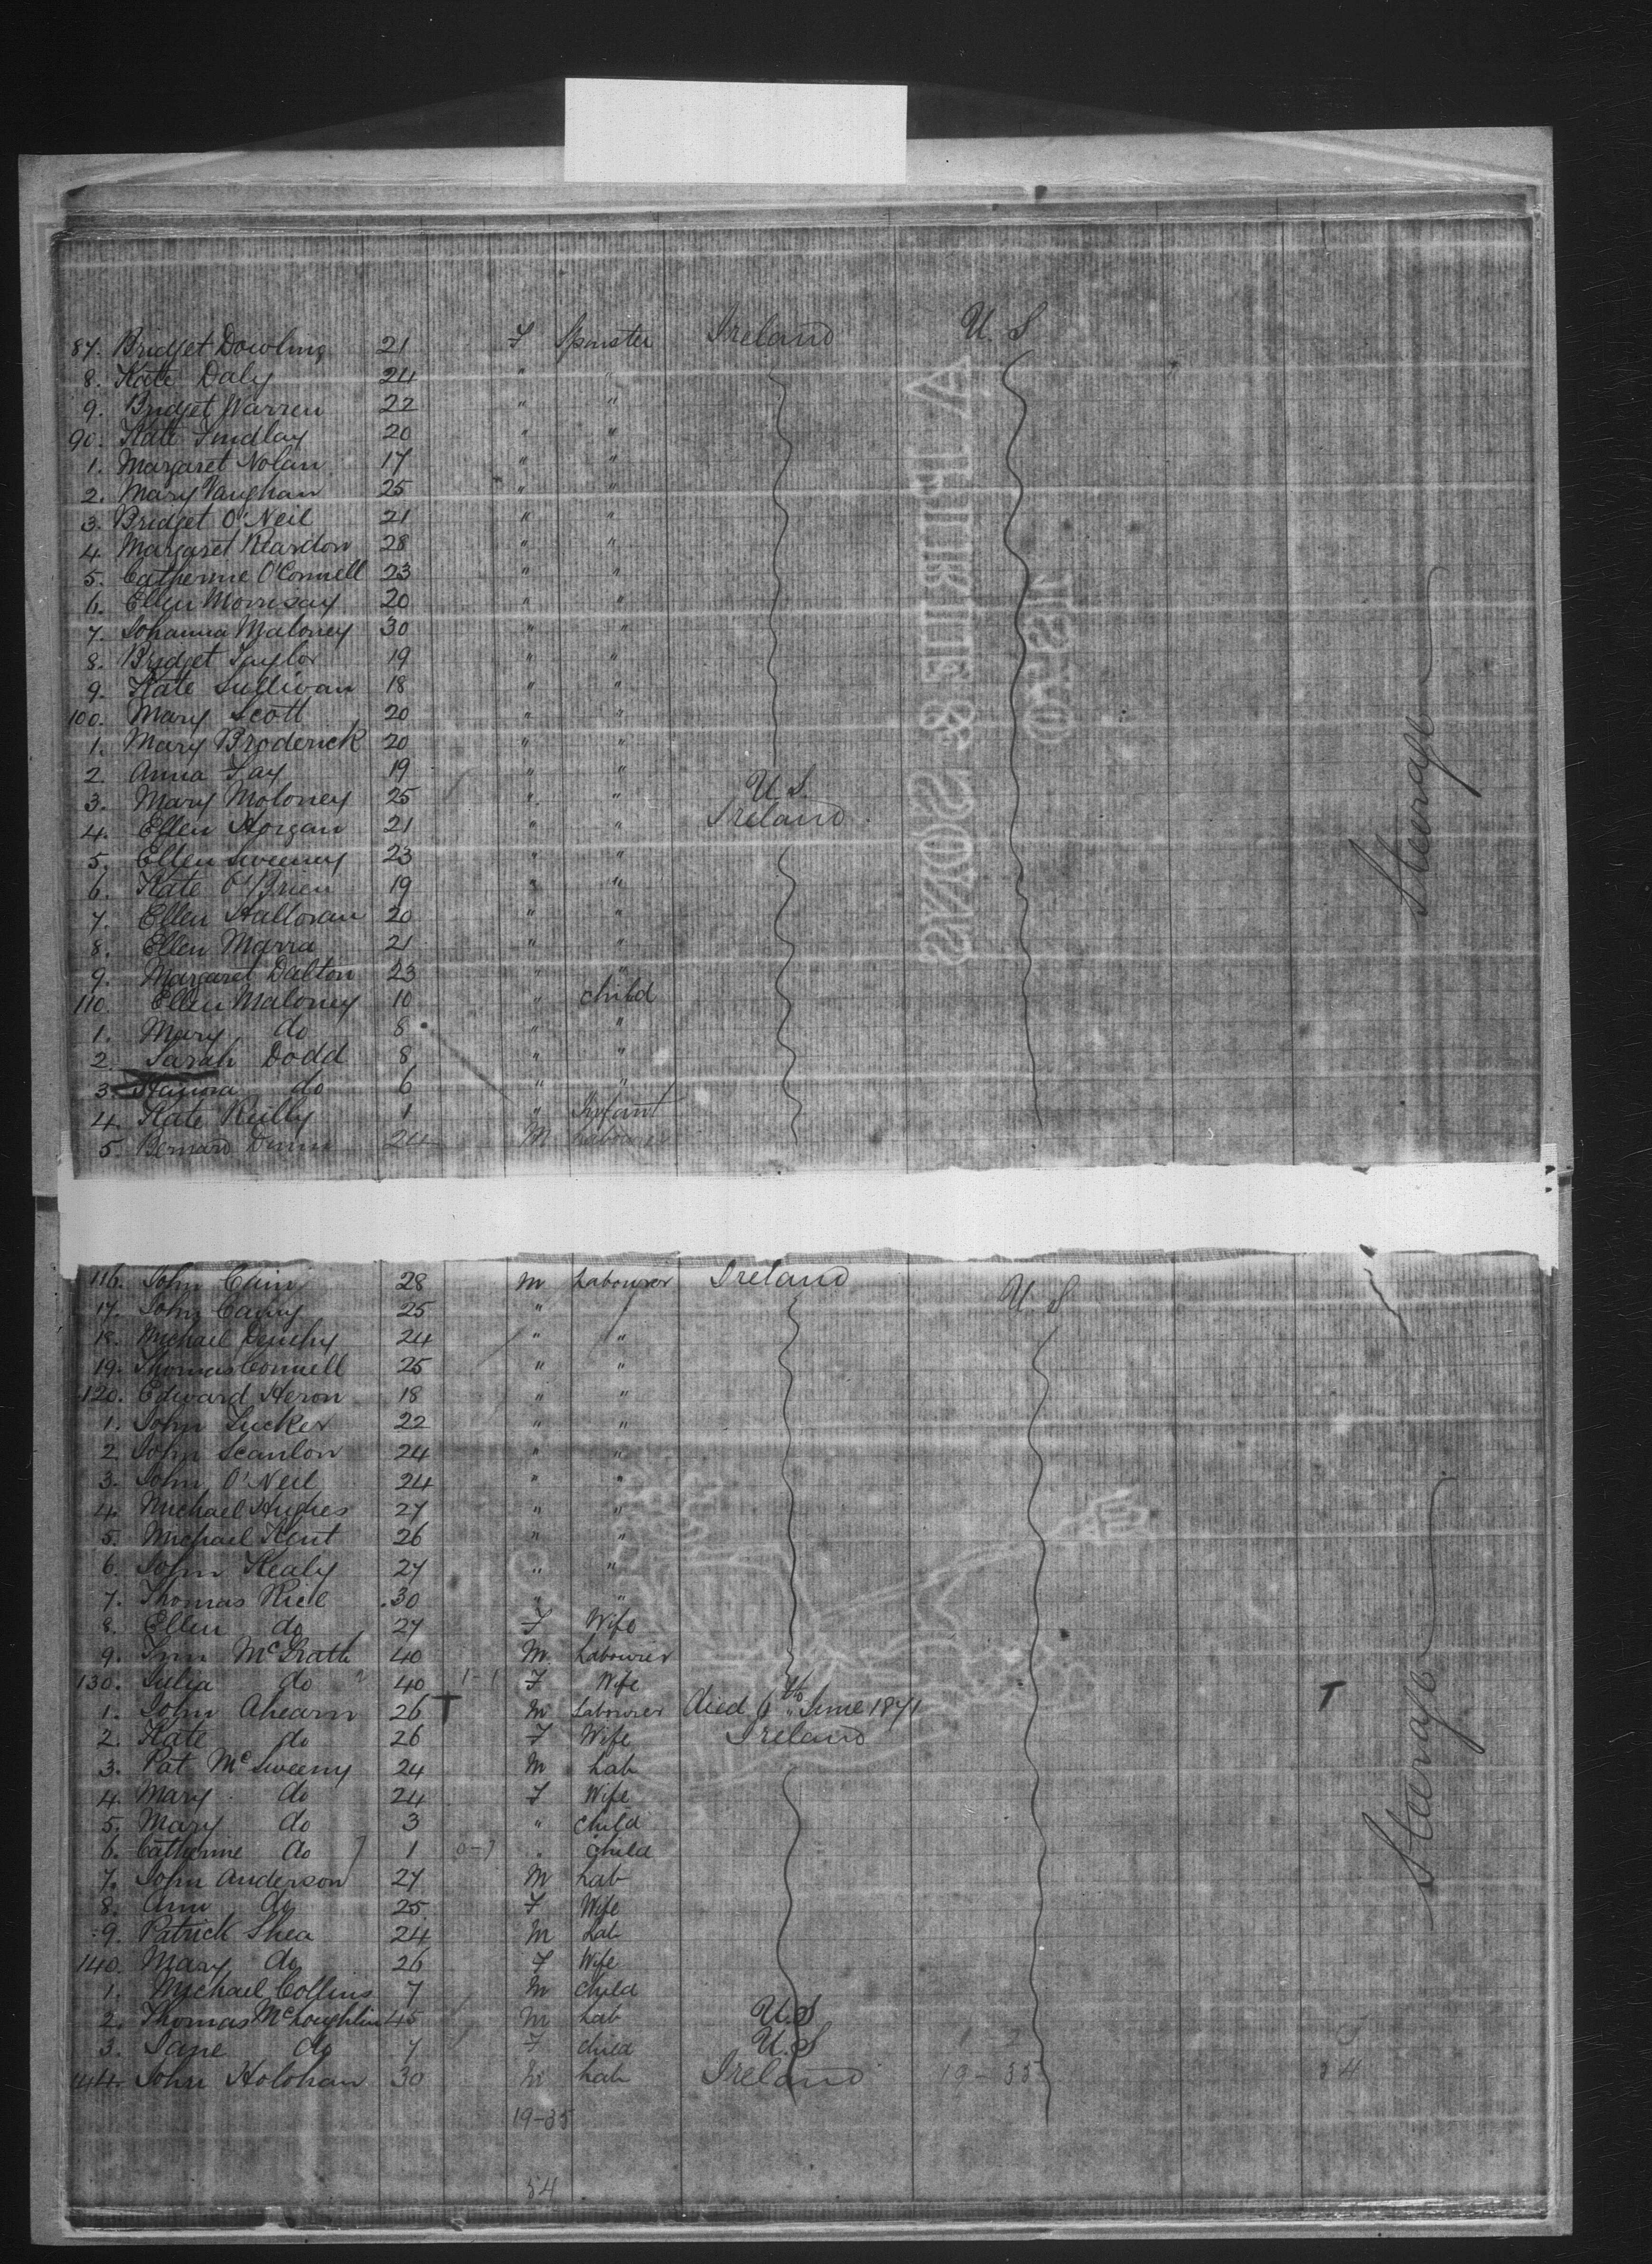 87. Bridget Dowling 21 F Spinster Ireland U.S
8. Kate Daly 24 " "
9. Bridget Warren 22 " "
90. Kate Findlay 20 " "
1. Margaret Nolan 17 " "
2. Mary Vaughan 25 " "
3. Bridget O'Neil 21 " "
4. Margaret Reardon 28 " "
5. Catherine O'Connell 23 " "
6. Ellen Morrisay 20 " "
7. Johanna Maloney 30 " "
8. Bridget Taylor 19 " "
9. Kate Sullivan 18 " "
100. Mary Scott 20 " "
1. Mary Broderick 20 " "
2. Anna Fay 19 " "
3. Mary Moloney 25 " " U.S.
4. Ellen Horgan 21 " " Ireland
5. Ellen Sweeney 23 " "
6. Kate O'Brien 19 " "
7. Ellen Halloran 20 " "
8. Ellen Marra 21 " "
9. Margaret Dalton 23 " "
110. Ellen Maloney 10 " child
1. Mary do 8 " "
2. Sarah Dodd 8 " "
3. do 6 " "
4. Kate Reilly 1 " Infant
5. Bernard Dunn 24 M Labourer
Steerage
A PIRIE & SONS
1870
116. John Cain 28 M Labourer Ireland U.S
17. John 25 "
18. Michael 24 " "
19. Thomas Connell 25 " "
120. Edward Heron 18 " "
1. John Tucker 22 " "
2 John Scanlon 24 " "
3. John O'Neil 24 " "
4. Michael Hughes 27 " "
5. Michael Kent 26 " "
6. John Healy 27 " "
7. Thomas Rice 30 " "
8. Ellen do 27 F Wife
9. McGrath 40 M Labourer
130. Julia do 40 F Wife
1. John Ahearn 26 T M Labourer died 6th June 1871 T
2. Kate do 26 F Wife Ireland
3. Pat McSweeny 24 M Lab
4. Mary do 24 F Wife
5. Mary do 3 " child
6. Catherine do 1 " child
7. John Anderson 27 M Lab
8. Ann do 25 F Wife
9. Patrick Shea 24 M Lab
140. Mary do 26 F Wife
1. Michael Collins 7 M child
2. Thomas McLoughlin 45 M Lab U.S
3. Jane do 7 F child U.S
144. John Holohan 30 M Lab Ireland 19-35
19-35
54
Steerage